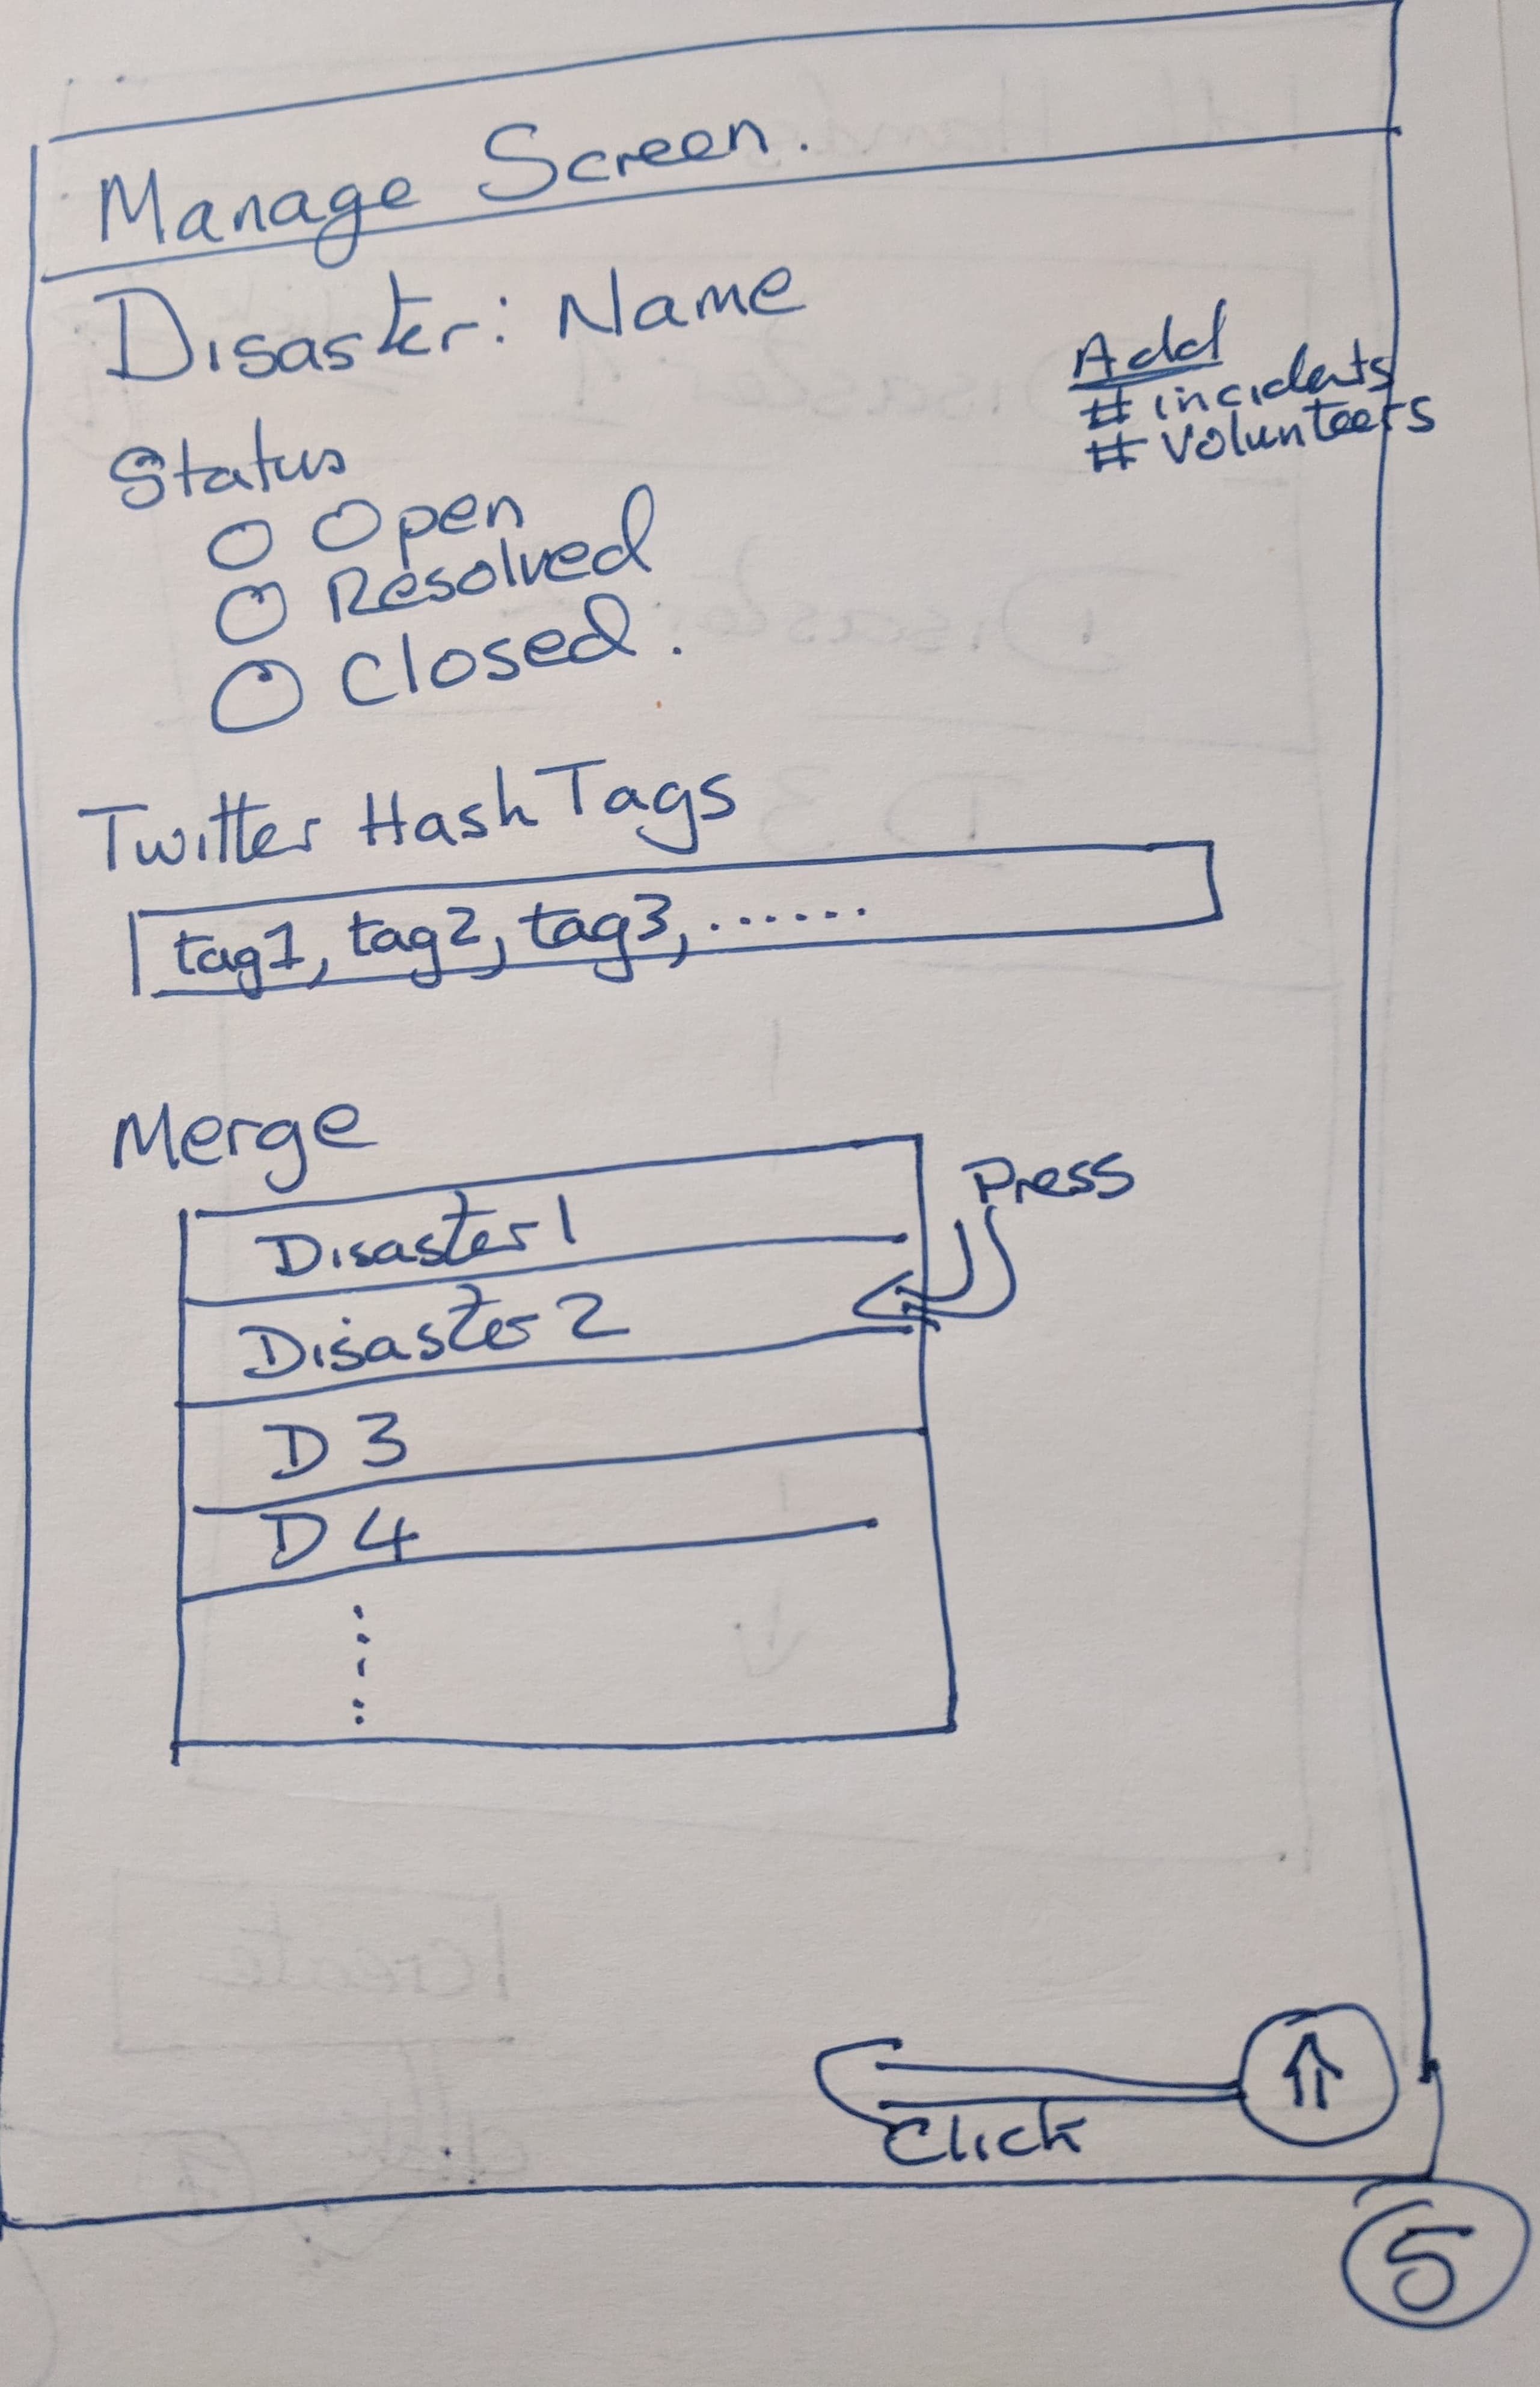 Manage Screen.
Disaster: Name
Add
# incidents
# Volunteers
Status
Open
Resolved
Closed.
Twitter HashTags
tag1, tag2, tag3, ......
Merge
Press
Disaster 1
Disaster 2
D 3
D 4
Click
5